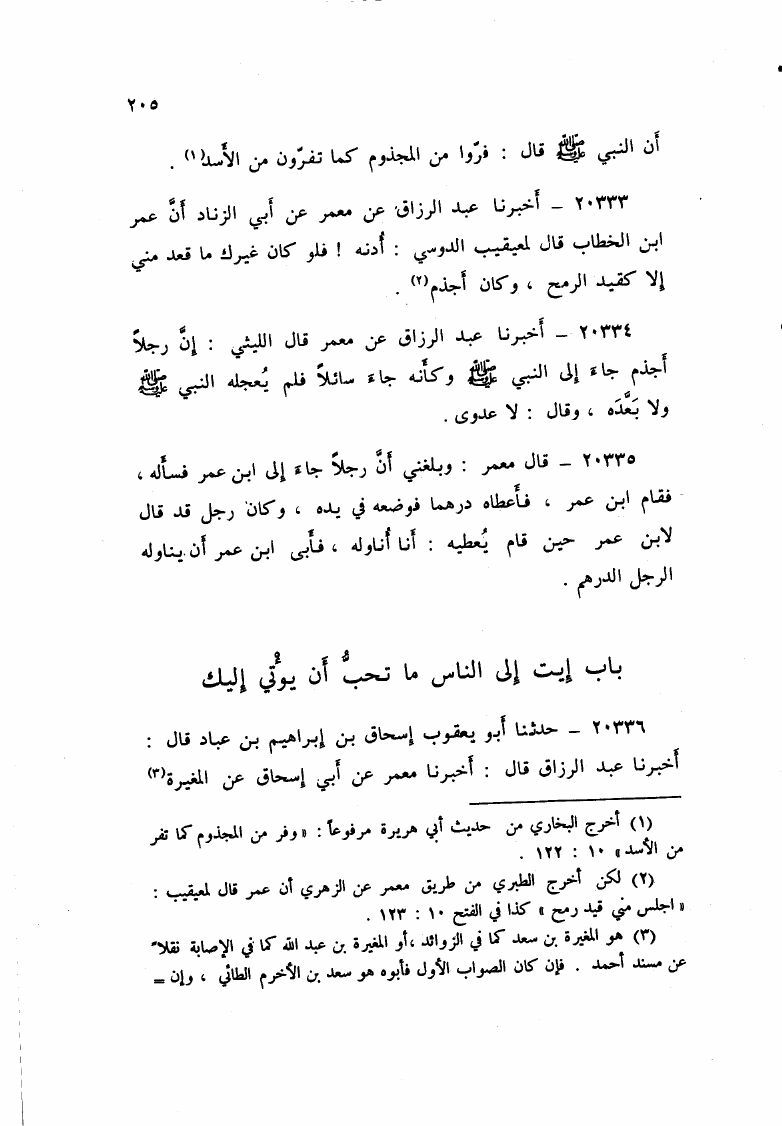 ٢٠٥
أن النبي ﷺ قال : فرّوا من المجذوم كما تفرّون من الأسد(١) .
٢٠٣٣٣ – أخبرنا عبد الرزاق عن معمر عن أبي الزناد أنَّ عمر
ابن الخطاب قال لمعيقيب الدوسي : أُدنه ! فلو كان غيرك ما قعد مني
إلا كقيد الرمح ، وكان أجذم(٢) .
٢٠٣٣٤ – أخبرنا عبد الرزاق عن معمر قال الليثي : إنَّ رجلاً
أجذم جاءَ إلى النبي ﷺ وكأنه جاءَ سائلاً فلم يُعجله النبي ﷺ
ولا بَعَّدَه ، وقال : لا عدوى .
٢٠٣٣٥ – قال معمر : وبلغني أنَّ رجلاً جاءَ إلى ابن عمر فسأله ،
فقام ابن عمر ، فأَعطاه درهما فوضعه في يده ، وكان رجل قد قال
لابن عمر حين قام يُعطيه : أنا أُناوله ، فأَبى ابن عمر أن يناوله
الرجل الدرهم .
باب إيت إلى الناس ما تحبُّ أن يؤْتي إليك
٢٠٣٣٦ – حدثنا أبو يعقوب إسحاق بن إبراهيم بن عباد قال :
أخبرنا عبد الرزاق قال : أخبرنا معمر عن أبي إسحاق عن المغيرة(٣)
(١) أخرج البخاري من حديث أبي هريرة مرفوعاً : «وفر من المجذوم كما تفر
من الأسد» ١٠ : ١٢٢ .
(٢) لكن أخرج الطبري من طريق معمر عن الزهري أن عمر قال لمعيقيب :
«اجلس مني قيد رمح» كذا في الفتح ١٠ : ١٢٣ .
(٣) هو المغيرة بن سعد كما في الزوائد ،أو المغيرة بن عبد الله كما في الإصابة نقلاً
عن مسند أحمد . فإن كان الصواب الأول فأبوه هو سعد بن الأخرم الطائي ، وإن =